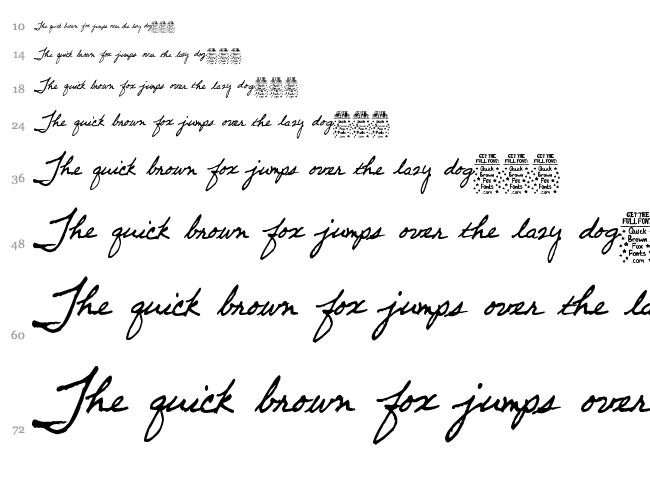 10 The quick brown fox jumps over the lazy dog
14 The quick brown fox jumps over the lazy dog
18 The quick brown fox jumps over the lazy dog
24 The quick brown fox jumps over the lazy dog
36 The quick brown fox jumps over the lazy dog GET THE FULL FONT: Quick Brown Fox Fonts .com GET THE FULL FONT: Quick Brown Fox Fonts .com GET THE FULL FONT: Quick Brown Fox Fonts .com
48 The quick brown fox jumps over the lazy dog GET THE FULL FONT Quick Brown Fox Fonts .com
60 The quick brown fox jumps over the la
72 The quick brown fox jumps over